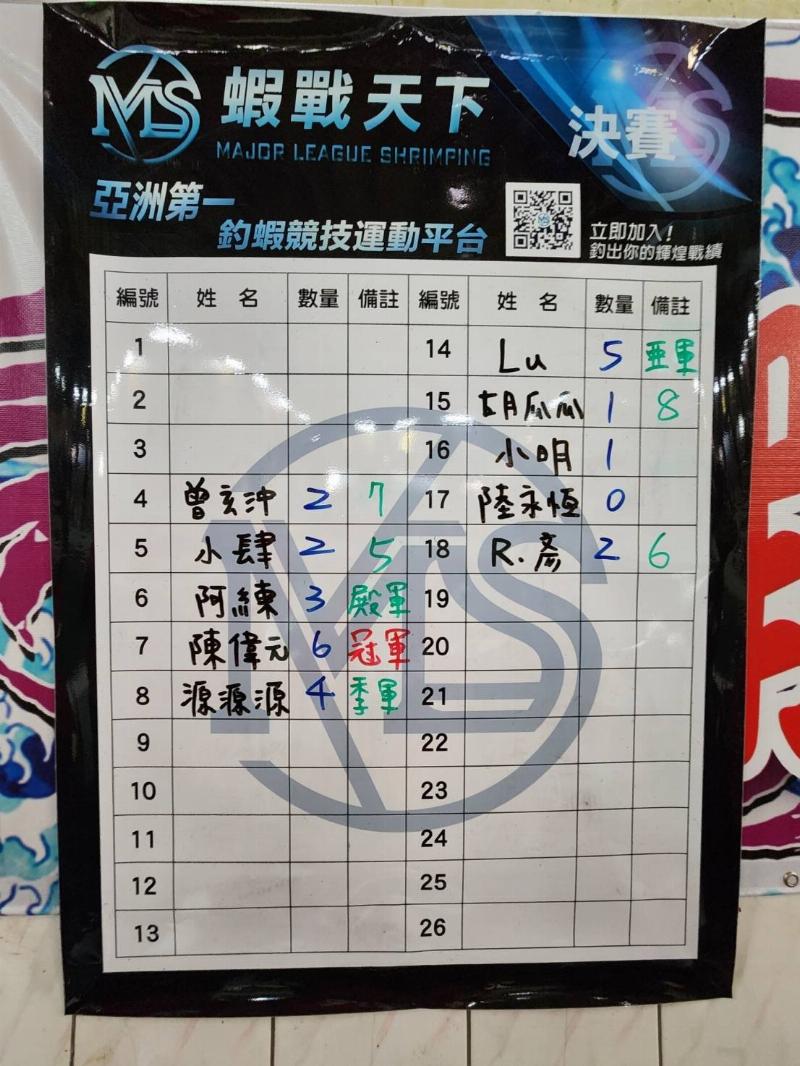 MLS 蝦戰天下
MAJOR LEAGUE SHRIMPING
決賽
亞洲第一
釣蝦競技運動平台
立即加入!
釣出你的輝煌戰績
編號 姓名 數量 備註 編號 姓名 數量 備註
1 14 Lu 5 亞軍
2 15 胡瓜瓜 1 8
3 16 小明 1
4 曾玄沖 2 7 17 陸永恒 0
5 小肆 2 5 18 R.彥 2 6
6 阿練 3 殿軍 19
7 陳偉元 6 冠軍 20
8 源源源 4 季軍 21
9 22
10 23
11 24
12 25
13 26